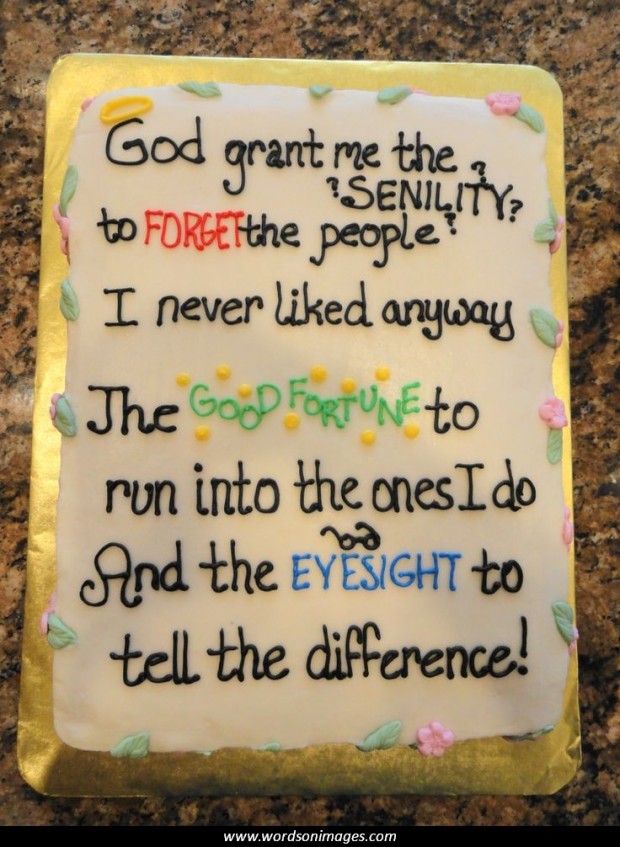 God grant me the
?SENILITY?
to FORGET the people
I never liked anyway
The GOOD FORTUNE to
run into the ones I do
And the EYESIGHT to
tell the difference!
www.wordsonimages.com